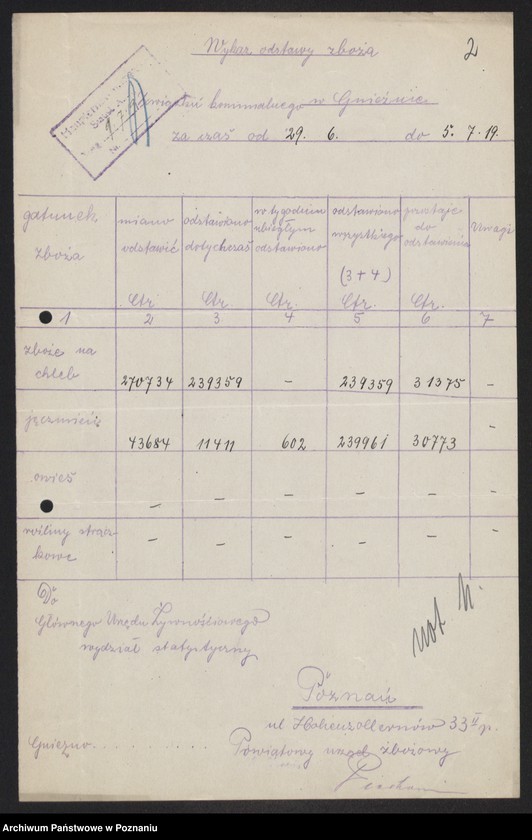 Wykaz odstawy zboża
2
powiatu komunalnego w Gnieźnie
za czaś od 29. 6. do 5. 7. 19.
gatunek zboża | miano odstawić | odstawiono dotychczaś | w tygodniu ubiegłym odstawiono | odstawiono wszystkiego (3+4) | pozostaje do odstawienia | Uwagi
Ctr. | Ctr. | Ctr. | Ctr. | Ctr.
1 | 2 | 3. | 4 | 5 | 6 | 7
zboże na chleb | 270734 | 239359 | – | 239359 | 31375 | –
jęczmień | 43684 | 11411 | 602 | 239961 | 30773 | –
owieś | – | – | – | – | – | –
rośliny strączkowe | – | – | – | – | – | –
Do
Głównego Urzędu Żywnościowego
wydział statystyczny
not.
Poznań
ul Hohenzollernów 33 II p.
Gniezno
Powiatowy urząd zbożowy
Archiwum Państwowe w Poznaniu